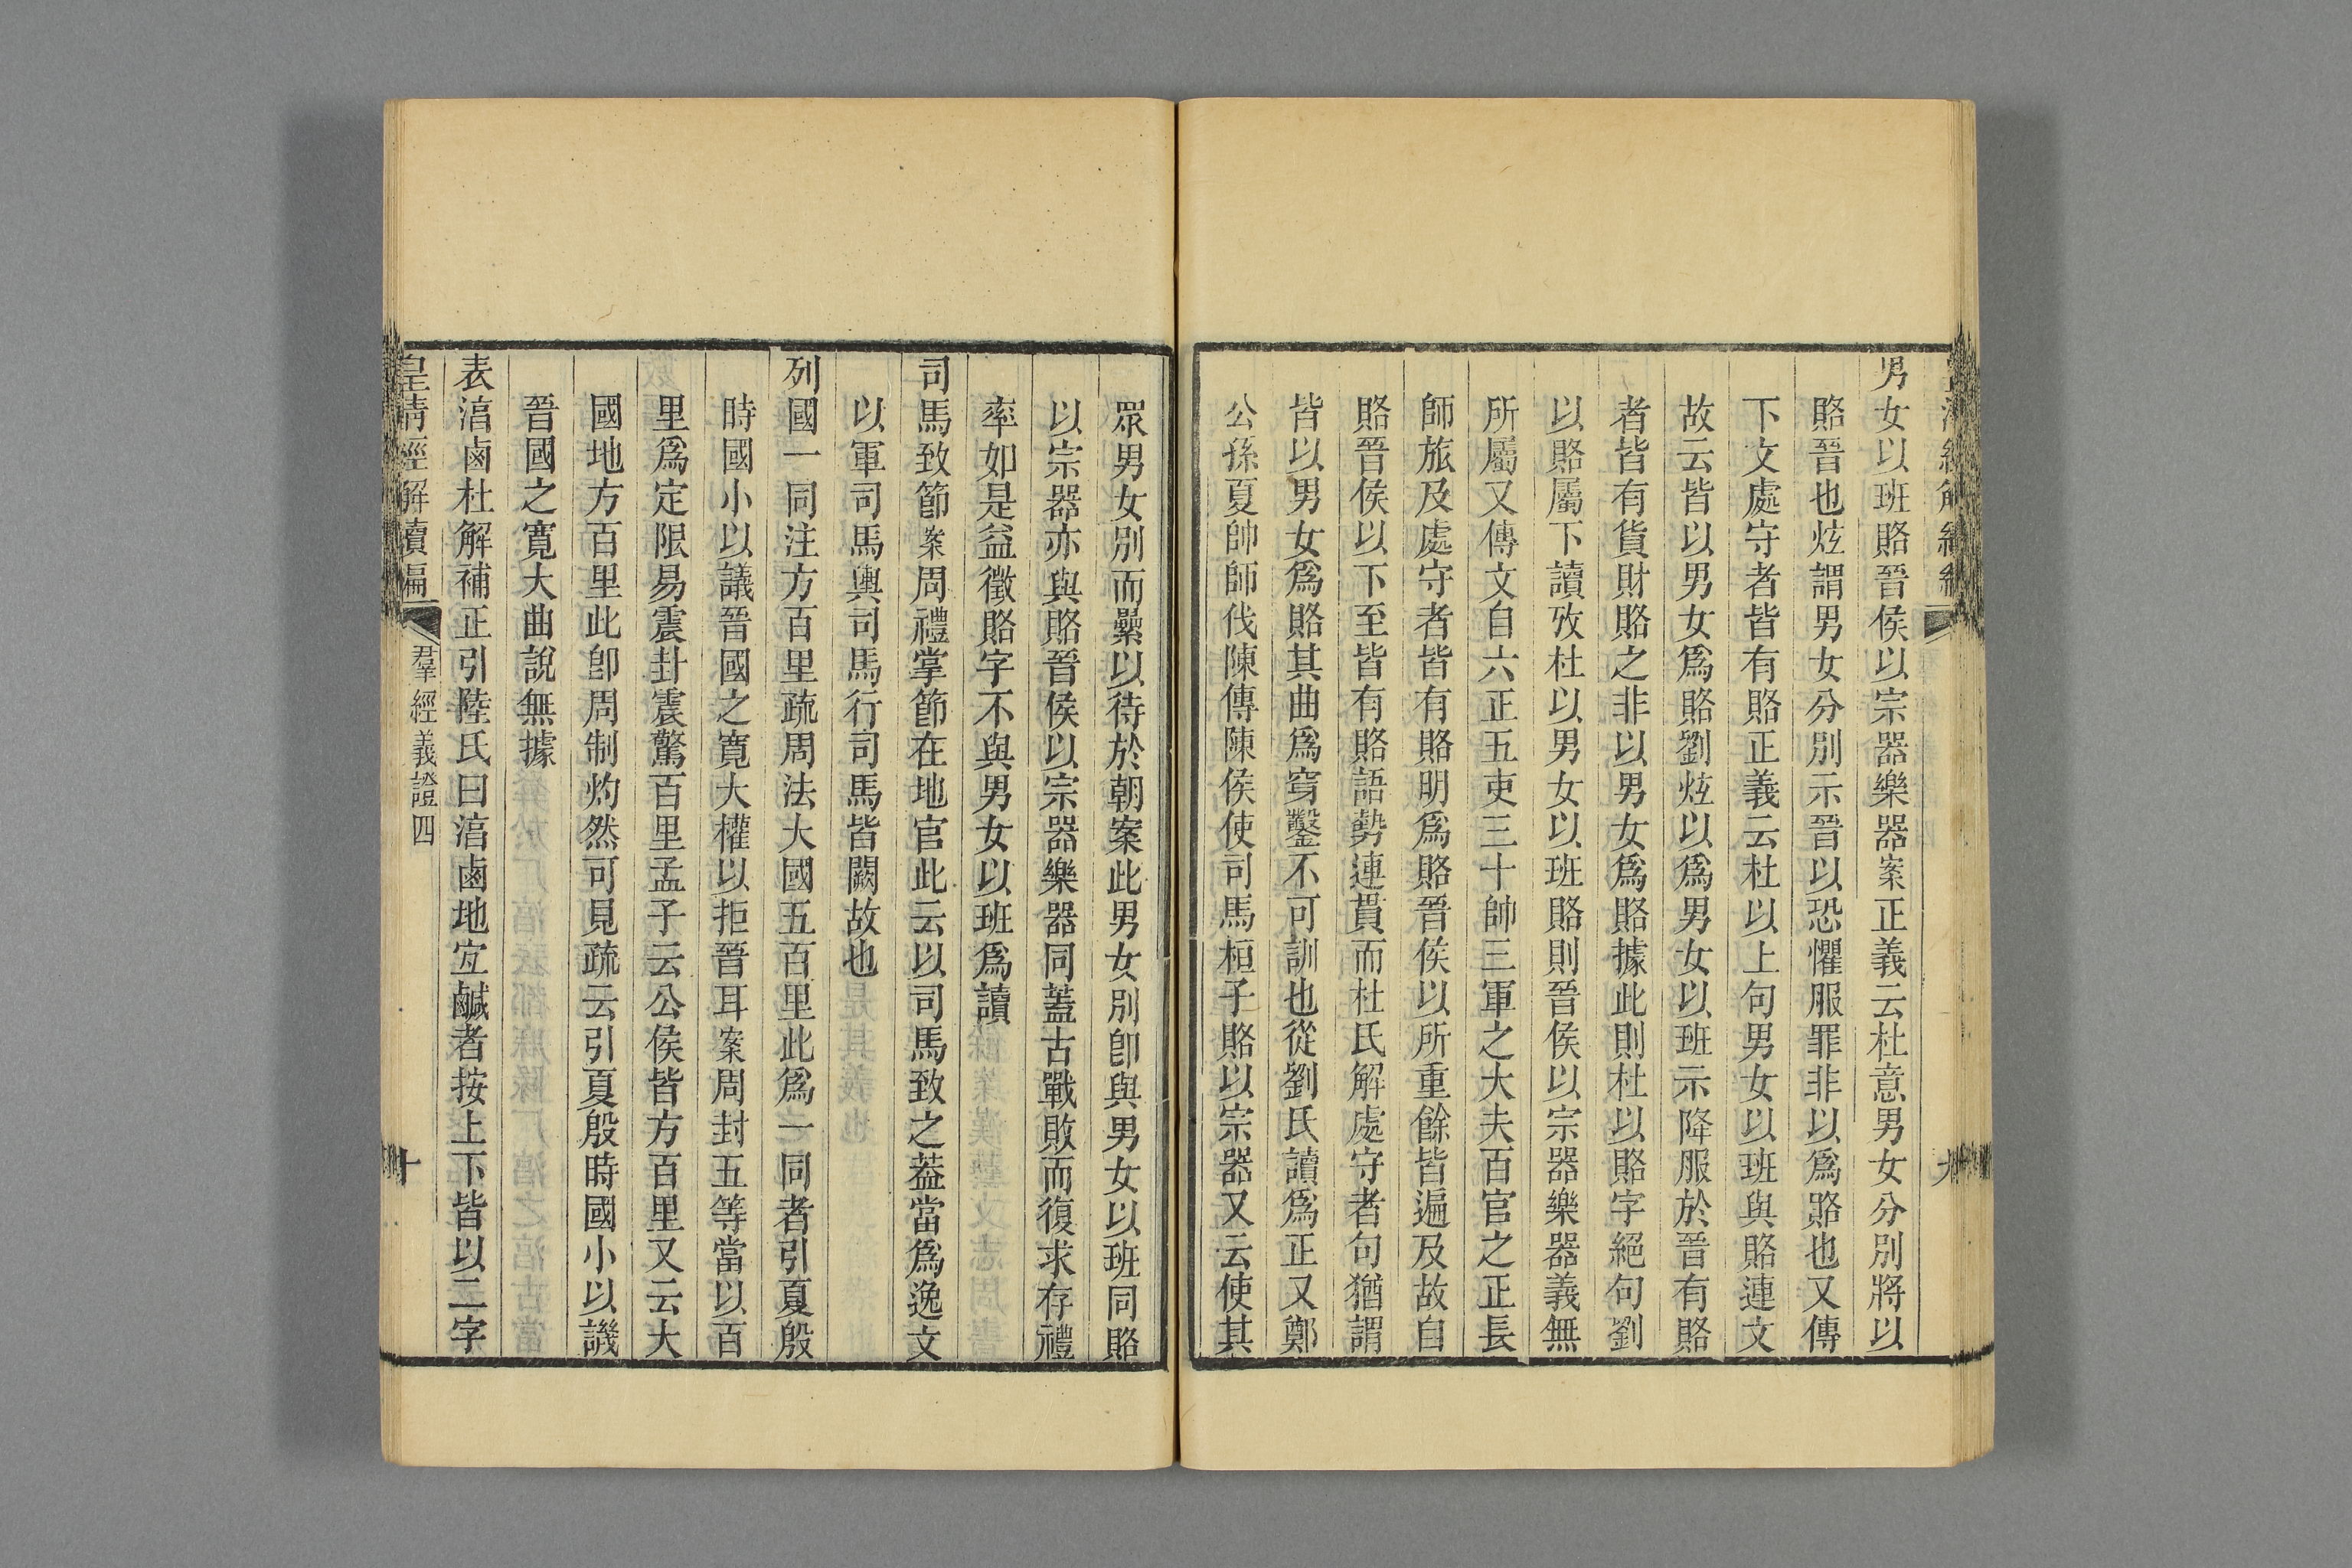 男女以班賂晉侯以宗器樂器案正義云杜意男女分別將以
賂晉也炫謂男女分別示晉以恐懼服罪非以爲賂也又傳
下文處守者皆有賂正義云杜以上句男女以班與賂連文
故云皆以男女爲賂劉炫以爲男女以班示降服於晉有賂
者皆有貨財賂之非以男女爲賂據此則杜以賂字絕句劉
以賂屬下讀攷杜以男女以班賂則晉侯以宗器樂器義無
所屬又傳文自六正五吏三十帥三軍之大夫百官之正長
師旅及處守者皆有賂明爲賂晉侯以所重餘皆遍及故自
賂晉侯以下至皆有賂語勢連貫而杜氏解處守者句猶謂
皆以男女爲賂其曲爲穿鑿不可訓也從劉氏讀爲正又鄭
公孫夏帥師伐陳傳陳侯使司馬桓子賂以宗器又云使其
眾男女別而纍以待於朝案此男女別卽與男女以班同賂
以宗器亦與賂晉侯以宗器樂器同蓋古戰敗而復求存禮
率如是益徵賂字不與男女以班爲讀
司馬致節案周禮掌節在地官此云以司馬致之葢當爲逸文
以軍司馬輿司馬行司馬皆闕故也
列國一同注方百里疏周法大國五百里此爲一同者引夏殷
時國小以議晉國之寬大權以拒晉耳案周封五等當以百
里爲定限易震卦震驚百里孟子云公侯皆方百里又云大
國地方百里此卽周制灼然可見疏云引夏殷時國小以譏
晉國之寬大曲說無據
表淳鹵杜解補正引陸氏曰淳鹵地宐鹹者按上下皆以二字
皇清經解續編
羣經義證四
十